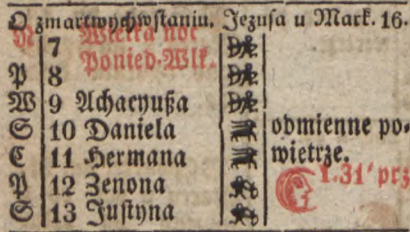 O zmartwychwstaniu. Jezusa u Mark. 16.
N 7 Wielka noc
P 8 Ponied. Wlk.
W 9 Achacyußa
S 10 Daniela odmienne po-
C 11 Hermana wietrze.
P 12 Zenona 1.31' prz
S 13 Justyna